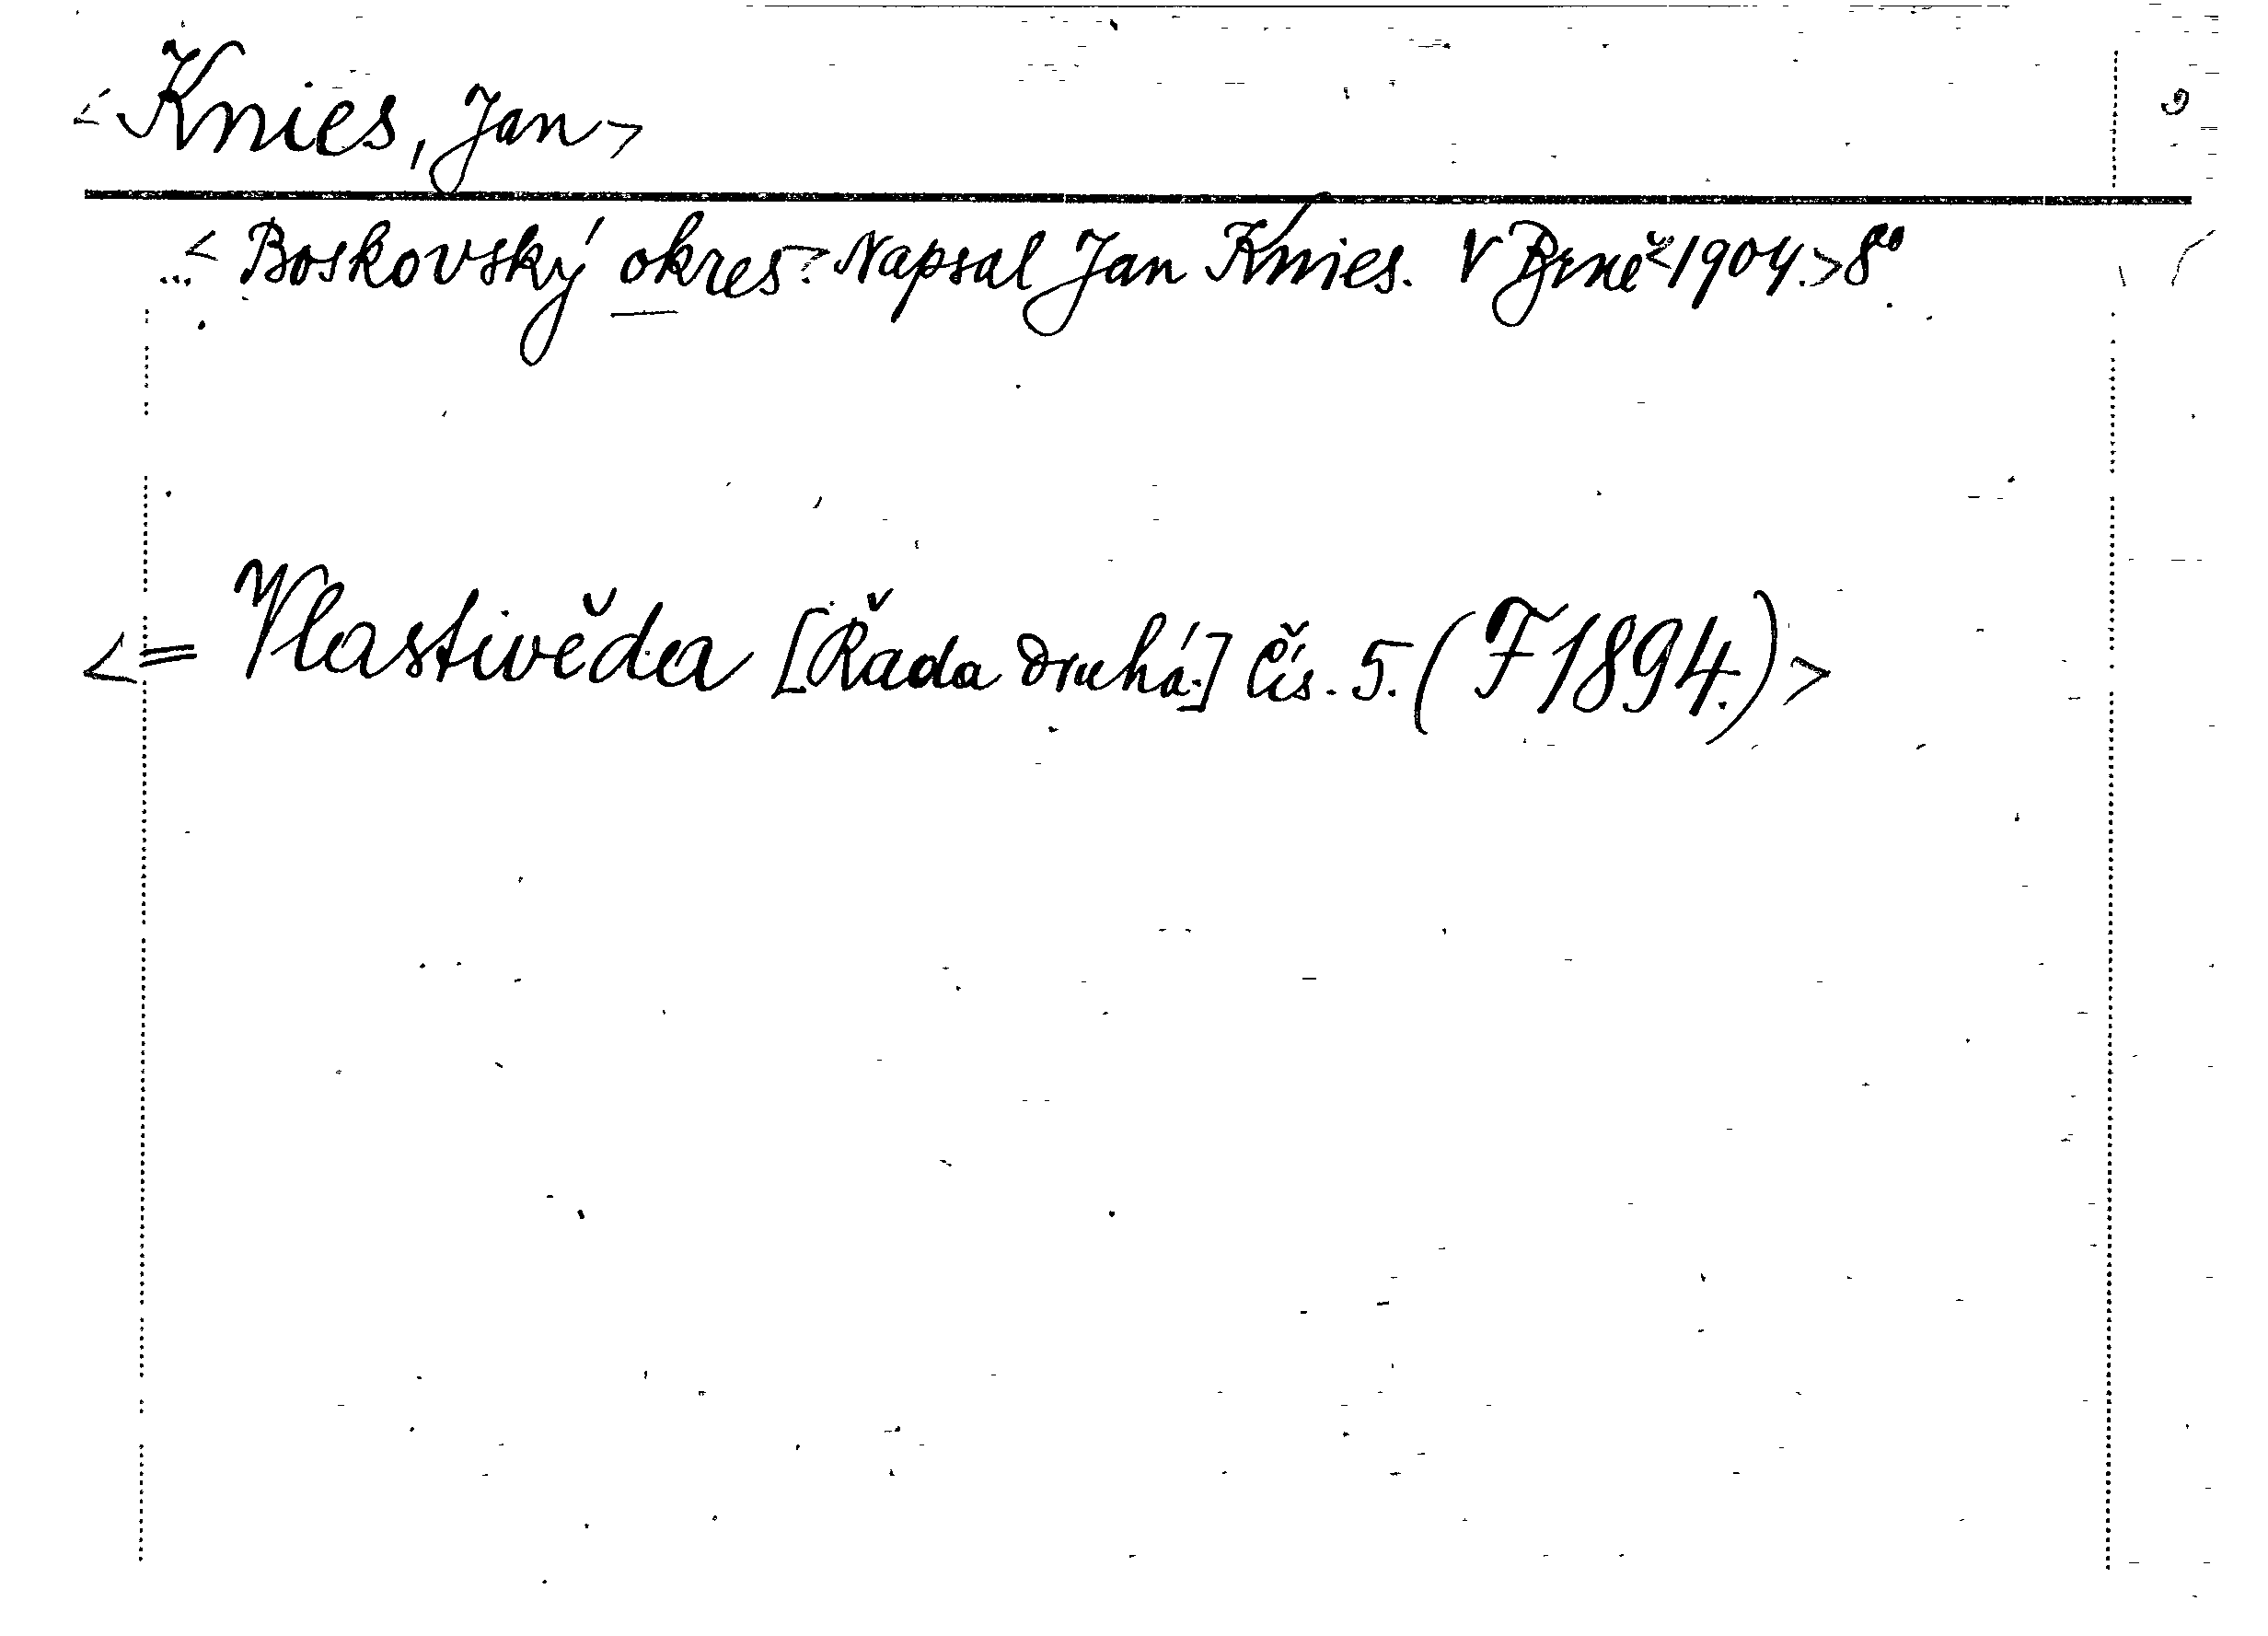 <Knies, Jan>
...< Boskovský okres.> Napsal Jan Knies. V Brně <1904.> 8°.
<= Vlastivěda [Řada druhá.] Čís. 5. (F 1894.)>